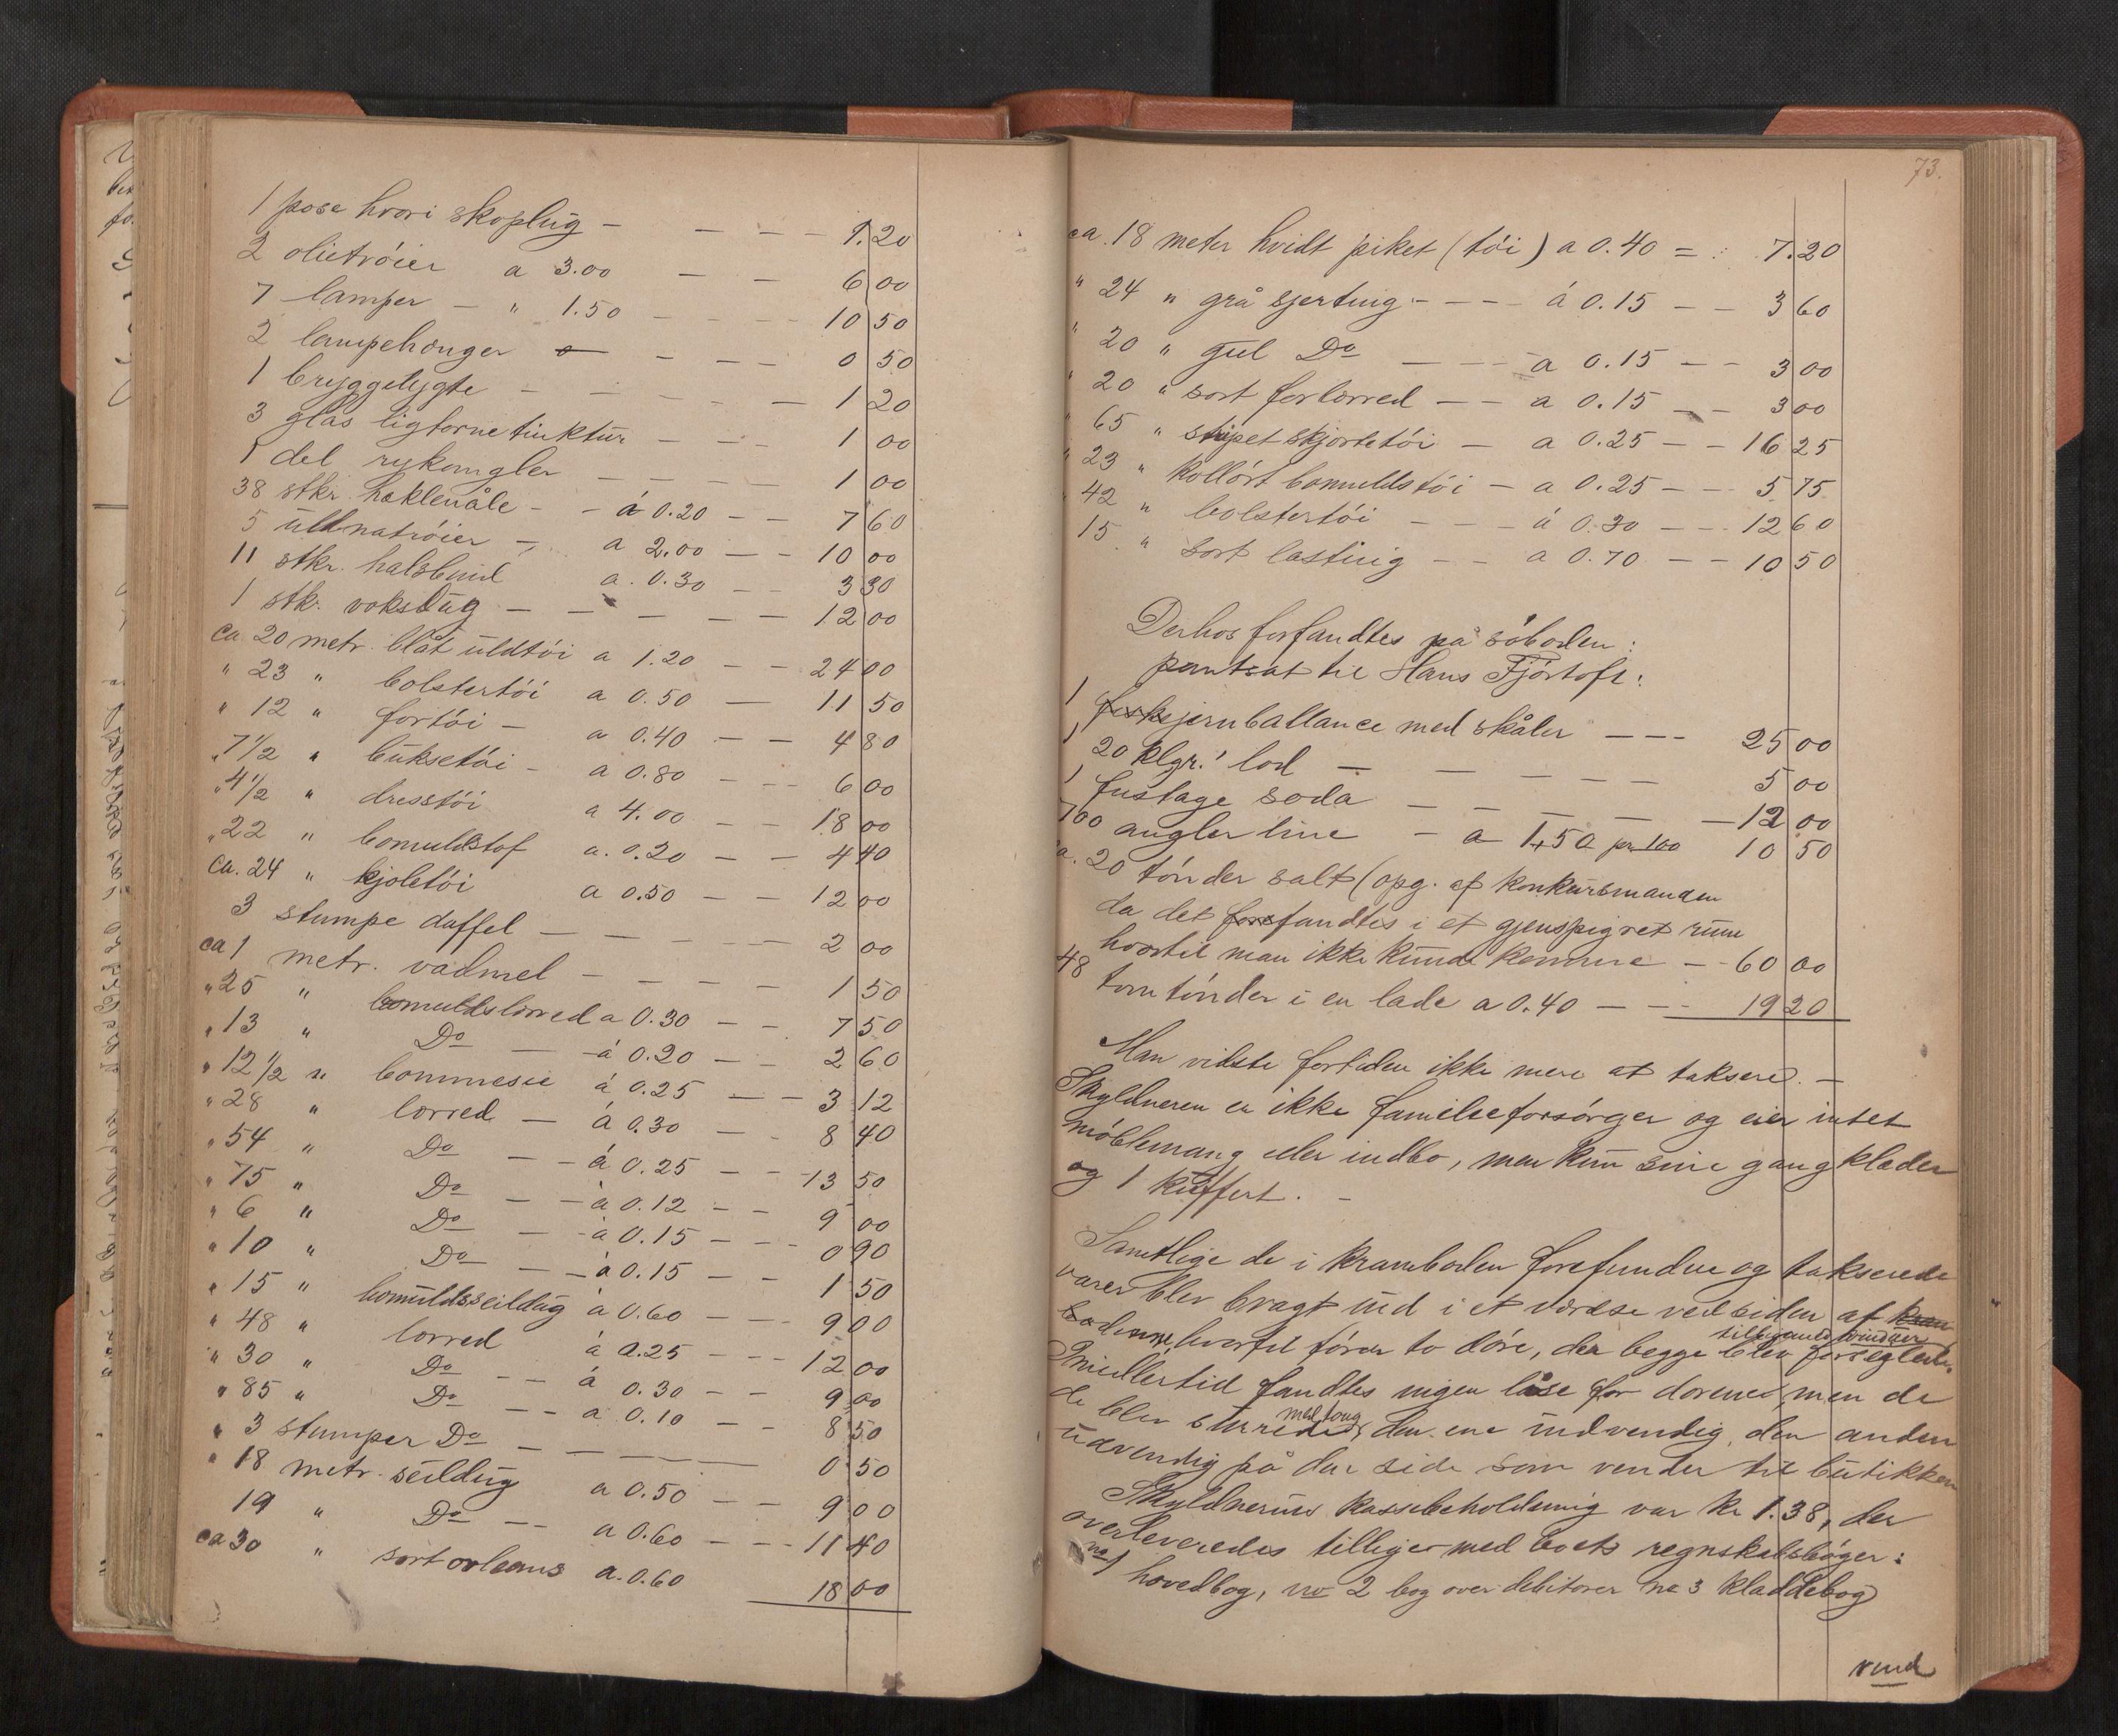 1 pose hvori skoplüg – – – – 1.20
2 olietröier a 3.00 – – 6 00
7 lamper – " 1.50 – – – 10 50
2 lampehænger – – – 0 50
1 bryggelygte – – – – 1 20
3 glas ligtornetinktür – – – 1 00
1 del rykangler – – – – 1 00
38 stkr. heklenåle – – á 0.20 – – 7 60
5 üldnatröier – a 2.00 – – 10 00
11 stkr. halsbind a. 0.30 – – 3 30
1 stk. voksdüg – – – – – 12 00
ca 20 metr. blåt üldtöi a 1.20 – – 24 00
" 23 " bolstertöi a 0.50 – 11 50
" 12 " fortöi – a 0.40 – – 4 80
" 7 1/2 " büksetöi – a 0.80 – – 6 00
" 4 1/2 " dresstöi a 4.00 – – 18 00
" 22 " bomuldstof a. 0.20 – – 4 40
ca. 24 " kjoletöi a 0.50 – – 12 00
3 stumpe duffel – – – – 2 00
ca 1 metr. vadmel – – – – 1 50
" 25 " bomuldslærred a 0.30 – – 7 50
" 13 " Do – á 0.20 – – 2 60
" 12 1/2 " bommesie á 0.25 – – 3 12
" 28 " lærred – á 0.30 – – 8 40
" 54 " Do – – á 0.25 – – 13 50
" 75 " Do – – á 0.12 – – 9 00
" 6 " Do – á 0.15 – – – 0 90
" 10 " Do – – á 0.15 – – 1 50
" 15 " bomüldsseildüg á 0.60 – – – 9 00
" 48 " lærred á 0.25 – – – 12 00
" 30 " Do – – á 0.30 – – – 9 00
" 85 " Do – – a 0.10 – – 8 50
" 3 stumper Do – – – – – 0 50
" 18 metr. seildüg a 0.50 – – 9 00
19 " Do – a 0.60 – – – 11 40
ca 30 " sort orleans a. 0.60 18 00
73.
ca. 18 meter hvidt piket (töi) a 0.40 = : 7.20
" 24 " grå sjerting – – – á 0.15 – – 3 60
" 20 " gül Do – – – a 0.15 – – 3 00
" 20 " sort forlærred – – a 0.15 – – 3 00
" 65 " stripet skjortetöi – a 0.25 – – 16 25
" 23 " kollört bomuldstöi – a 0.25 – – 5 75
" 42 " bolstertöi – – – á 0.30 – – – 12 60
15 " sort lasting – – a 0.70 – – 10 50
Derhos forfandtes på söboden:
pantsat til Hans Fjörtoft:
1 jernballance med skåler – – – 25 00
1 20 klgr.' lod – – – – – – 5 00
1 fustage soda – – – – – 12 00
700 angler line – a 1,50 pr 100 10 50
ca. 20 tönder salt (opg. af konkürsmanden
da det fandtes i et gjenspigret rüm
hvortil man ikke künde komme – – 60 00
48 tomtönder i en lade a 0.40 – – – 19 20
Man vidste fortiden ikke mere at taksere. –
Skyldneren er ikke familieforsörger og eier intet
möblemang eller indbo, men kün sine gangklæder
og 1 küffert. –
Samtlige de i kramboden forefundne og takserede
varer blev bragt ind i et værelse ved siden af kram
boden, hvortil förer to döre, der begge blev forseglede,
tilligemed vinduer
Imidlertid fandtes ingen låse for dørene, men de
de blev surrede, den ene indvendig, den anden
med toug
üdvendig på den side som vender til bütikken
Skyldnerens kassebeholdning var kr 1.38, der
overleveredes tilligemed boets regnskabsbøger:
no 1 hovedbog, no 2 bog over debitorer no 3 kladdebog
vend